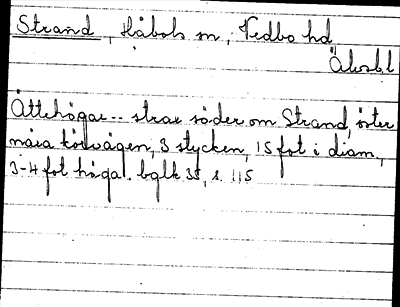 Strand, Håbols sn, Vedbo hd
Älvsbl
Ättehögar -- strax söder om Strand, öster
nära körvägen, 3 stycken, 15 fot i diam.,
3-4 fot höga. bglk 35, s. 115